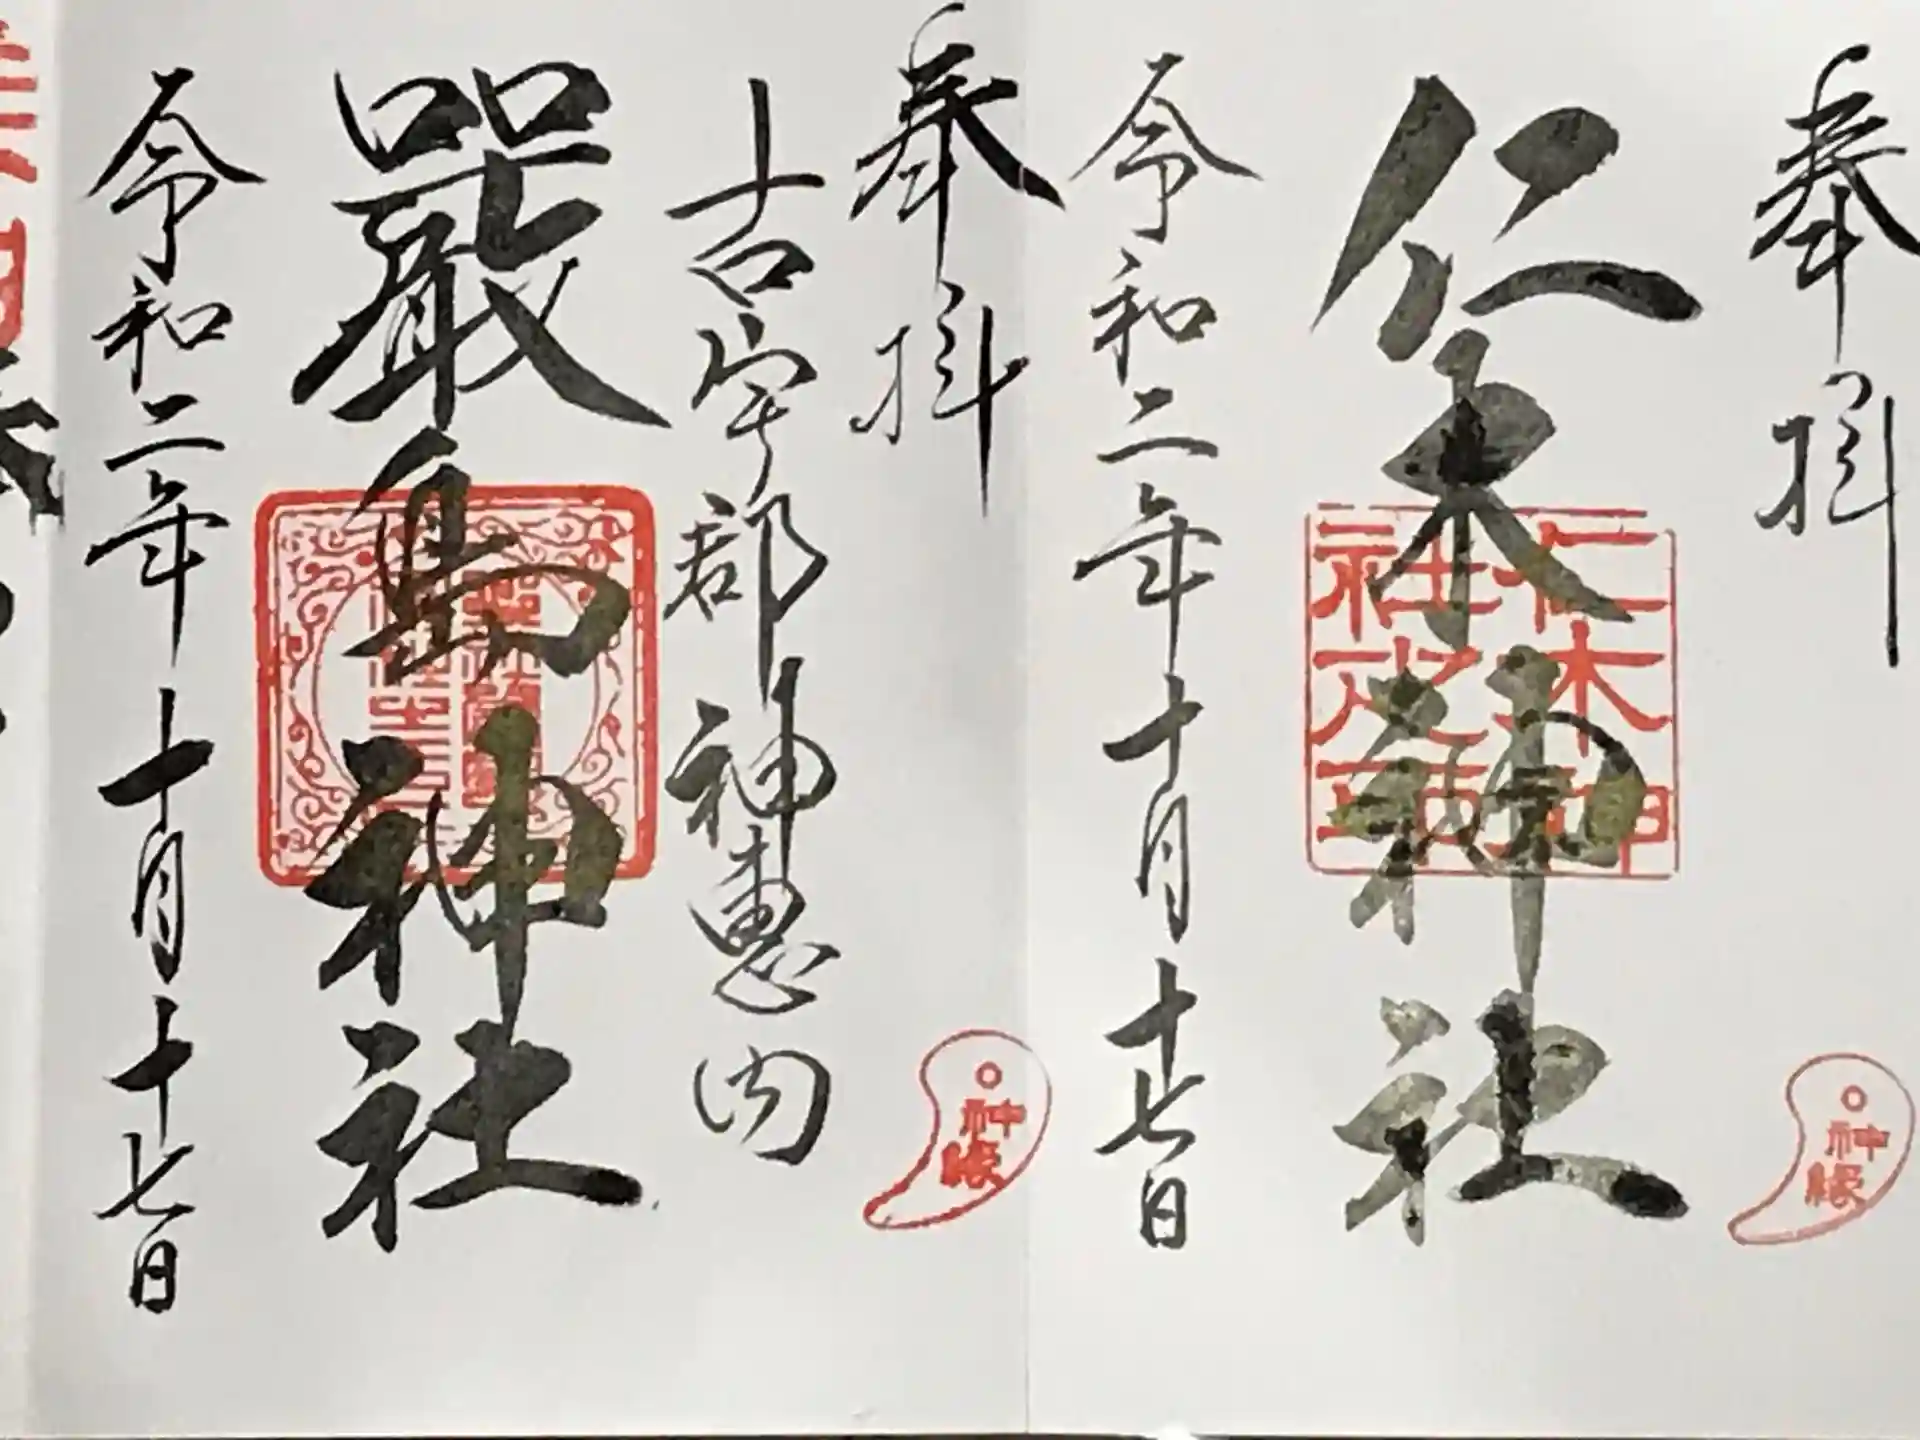 奉拝
仁木神社
仁木神
社之印
令和二年十月十七日
神縁
奉拝
古宇郡神恵内
嚴島神社
令和二年十月十七日
神縁